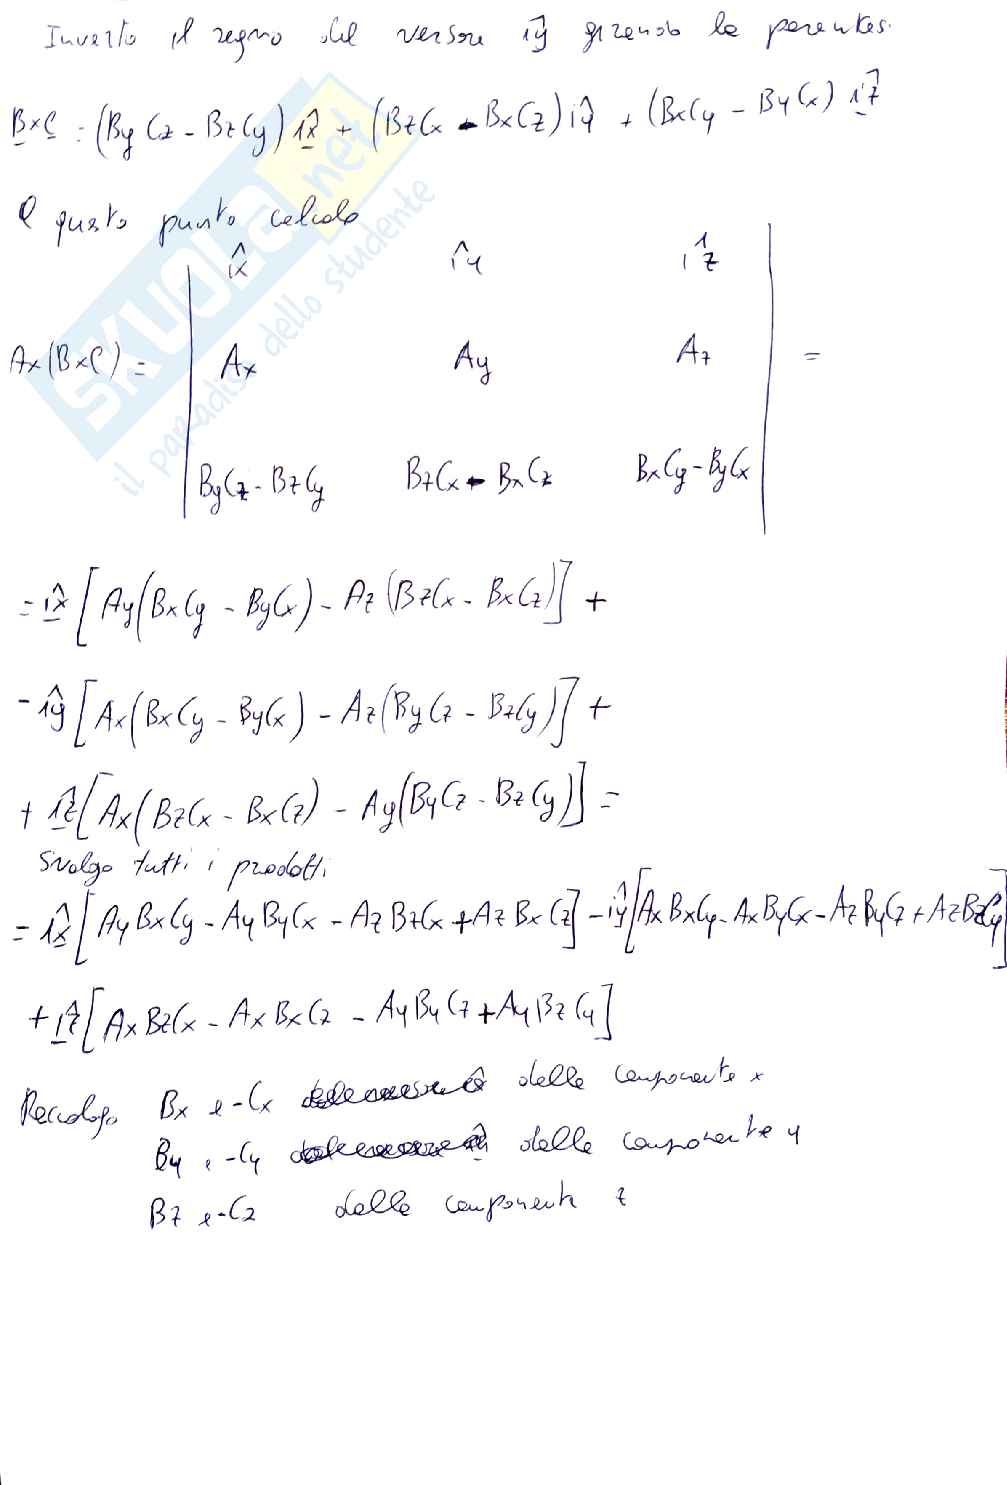 Inverto il segno del versore îy girando la parentesi.
B×C = (ByCz - BzCy) îx + (BzCx - BxCz) îy + (BxCy - ByCx) îz
A questo punto calcolo
îx îy îz
A×(B×C) = Ax Ay Az =
ByCz - BzCy BzCx - BxCz BxCy - ByCx
= îx [Ay(BxCy - ByCx) - Az(BzCx - BxCz)] +
- îy [Ax(BxCy - ByCx) - Az(ByCz - BzCy)] +
+ îz [Ax(BzCx - BxCz) - Ay(ByCz - BzCy)] =
svolgo tutti i prodotti
= îx [AyBxCy - AyByCx - AzBzCx + AzBxCz] - îy [AxBxCy - AxByCx - AzByCz + AzBzCy]
+ îz [AxBzCx - AxBxCz - AyByCz + AyBzCy]
Raccolgo Bx e -Cx dalla componente x
By e -Cy dalla componente y
Bz e -Cz dalla componente z
SKUOLA.net
il paradiso dello studente